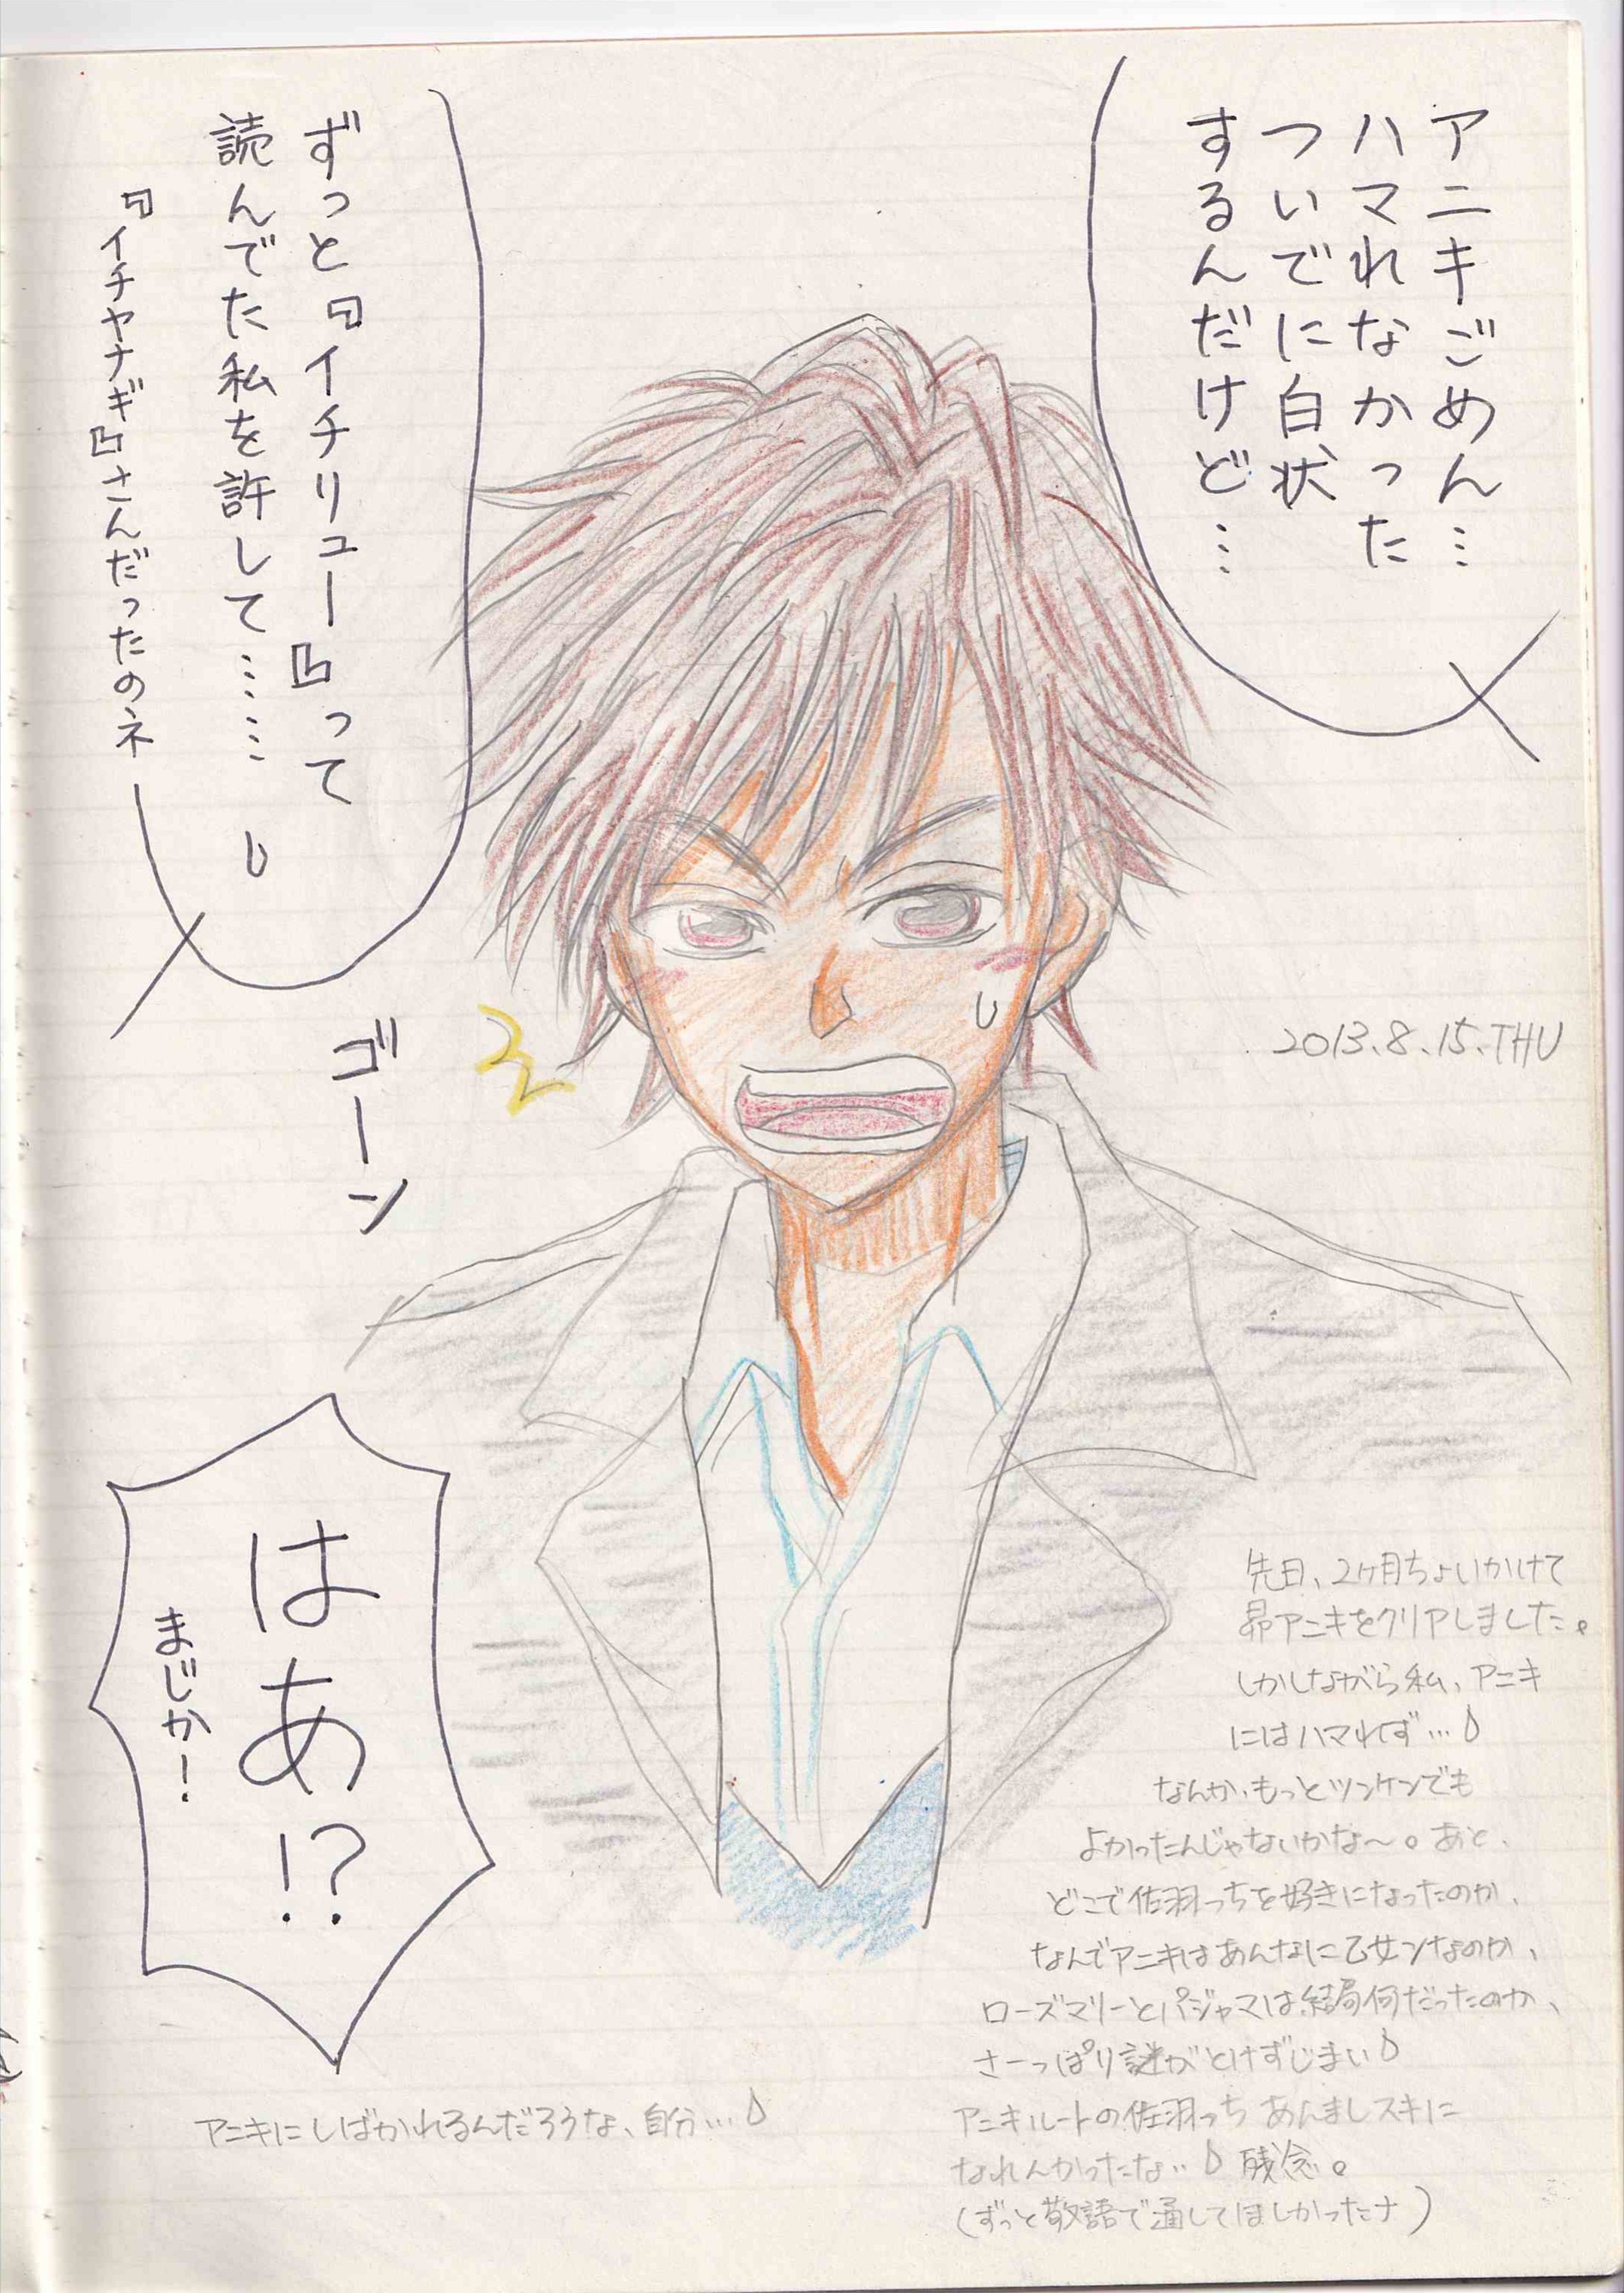 アニキごめん…
ハマれなかった
ついでに白状
するんだけど…
ずっと『イチリュー』って
読んでた私を許して……
『イチヤナギ』さんだったのネ
ゴーン
2013.8.15.THU
はあ!?
まじか–!
先日、2ヶ月ちょいかけて
昴アニキをクリアしました。
しかしながら私、アニキ
にはハマれず…
なんか、もっとツンケンでも
よかったんじゃないかな〜。あと、
どこで佐羽っちを好きになったのか、
なんでアニキはあんなに乙女ンなのか、
ローズマリーとパジャマは結局何だったのか、
さーっぱり謎がとけずじまい
アニキルートの佐羽っち あんましスキに
なれんかったな‥ 残念。
(ずっと敬語で通してほしかったナ)
アニキにしばかれるんだろうな、自分…